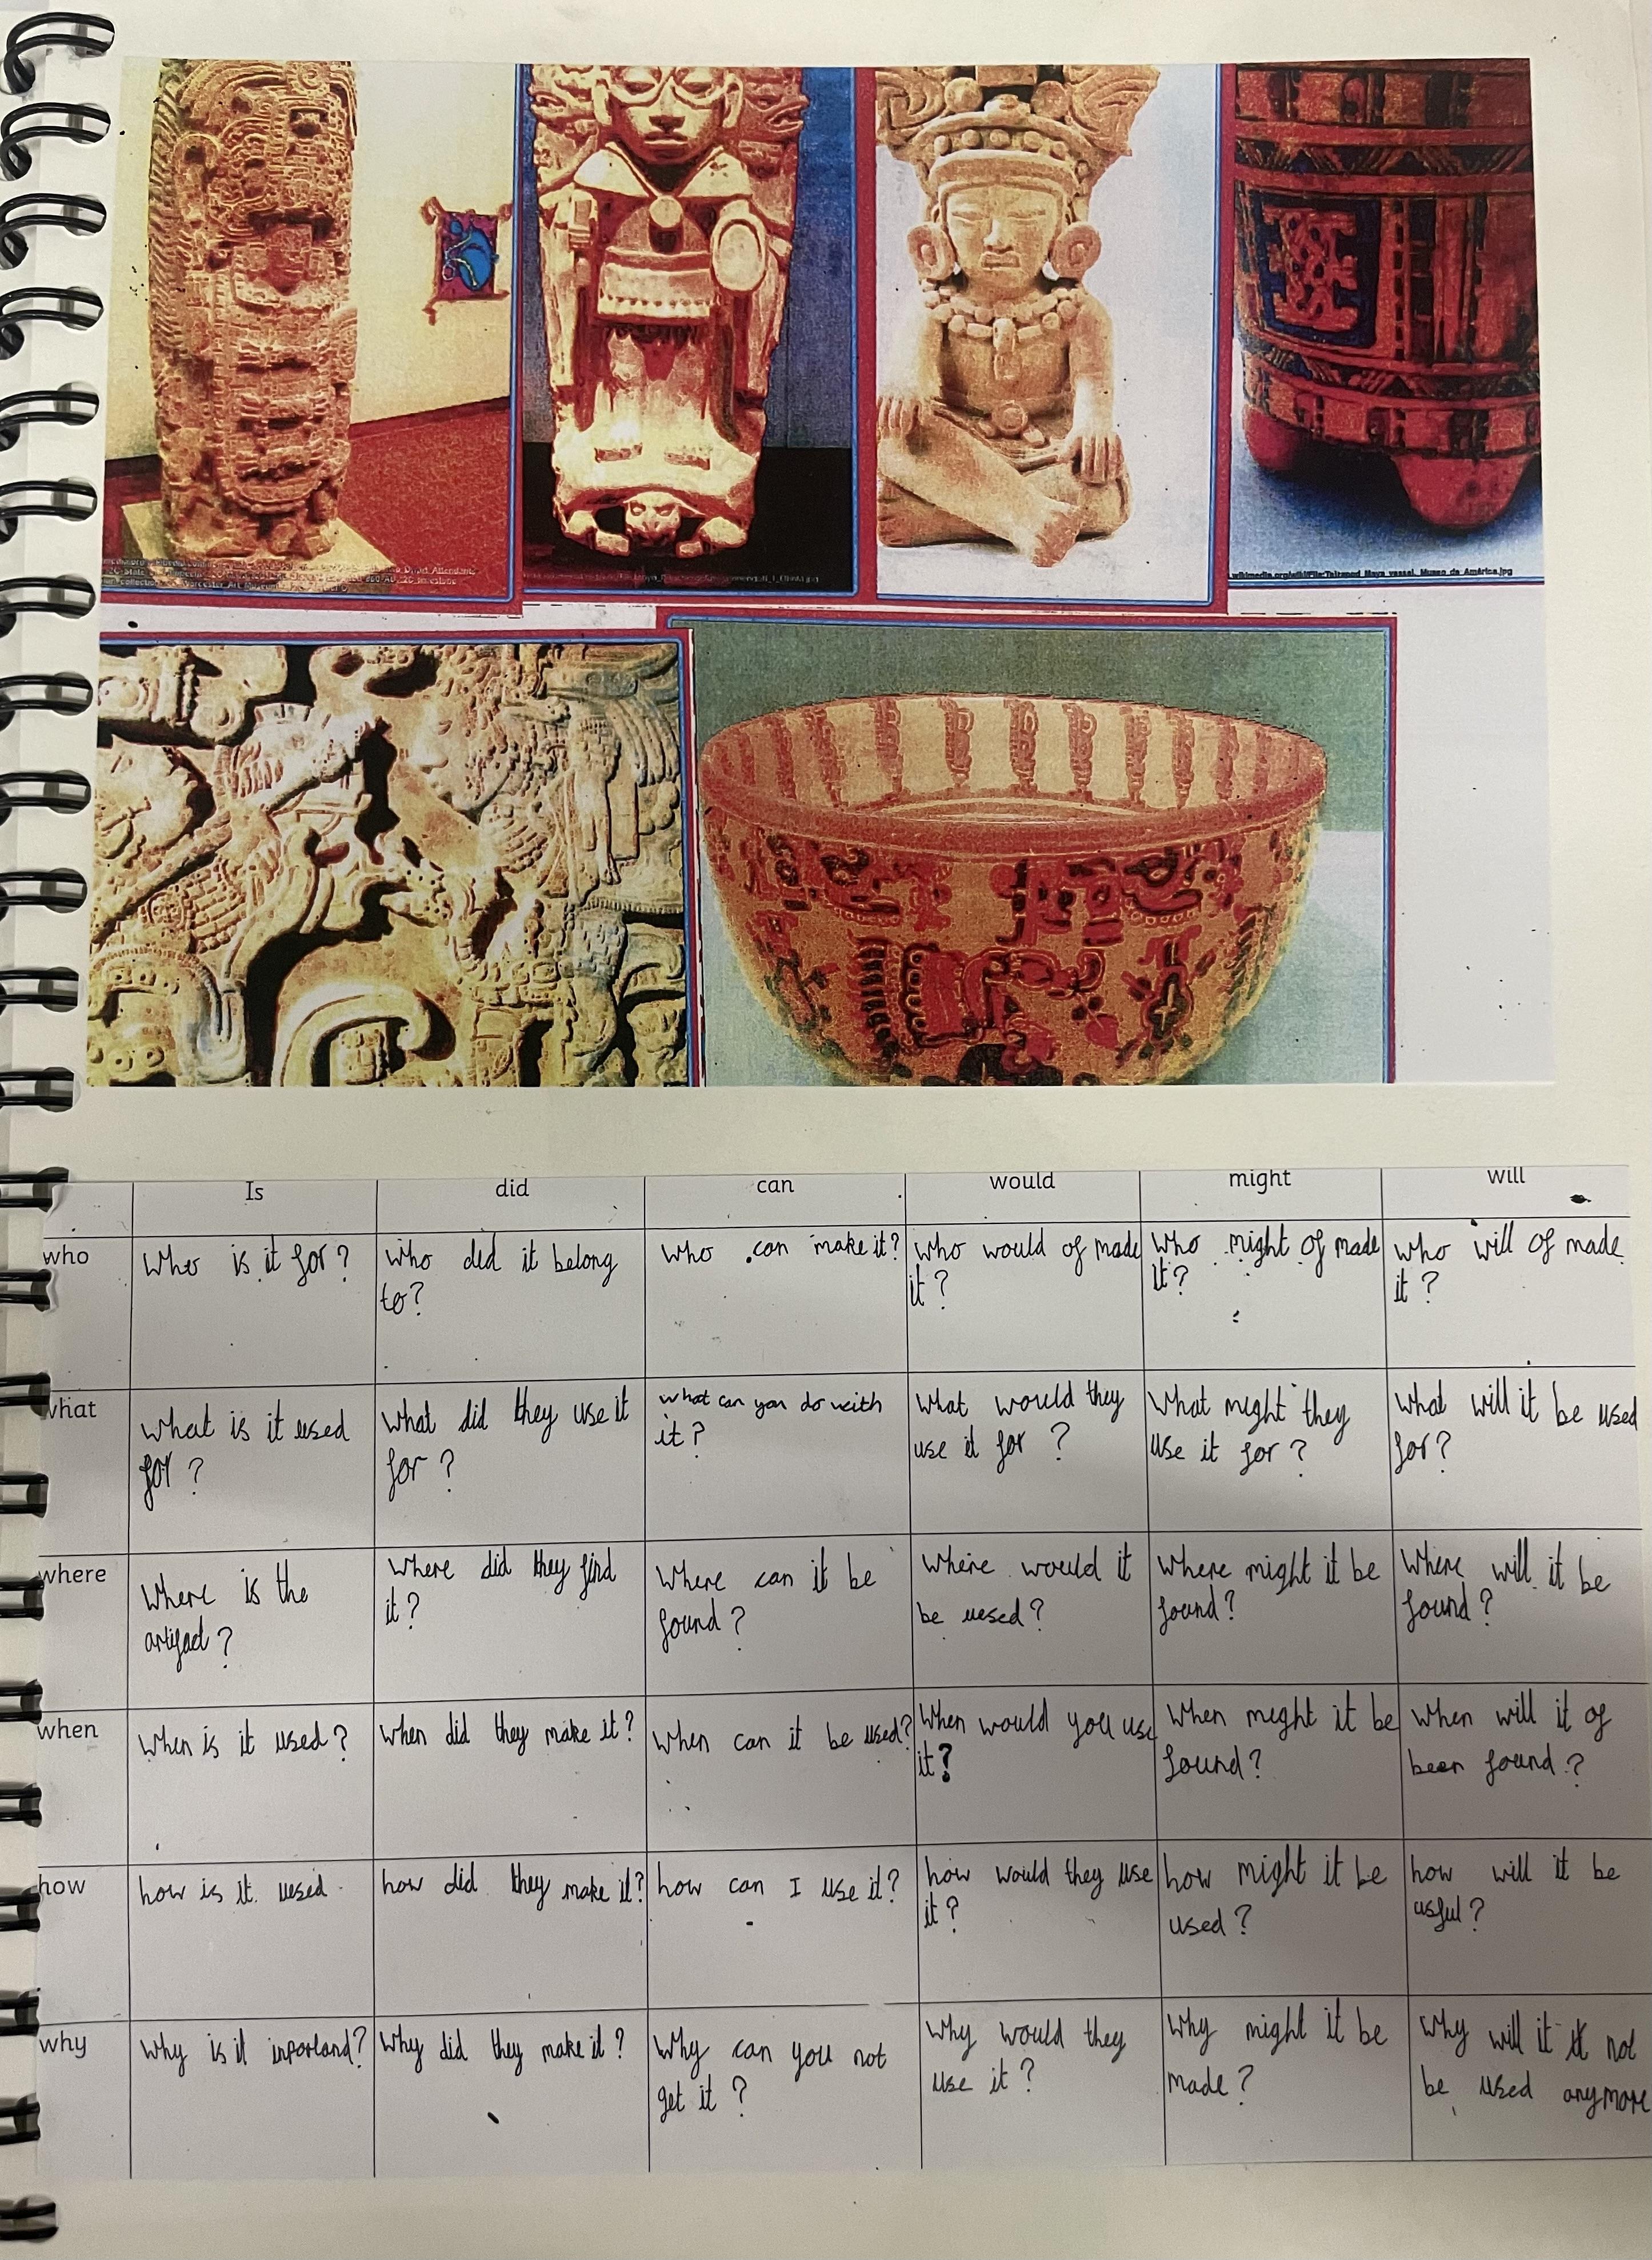 wikimedia.org/wiki/File:Tetrapod_Maya_vessel,_Museo_de_América.jpg
Is did can would might will
who
Who is it for?
Who did it belong
to?
Who can make it?
Who would of made
it?
Who might of made
it?
Who will of made
it?
what
What is it used
for?
What did they use it
for?
what can you do with
it?
What would they
use it for?
What might they
use it for?
What will it be used
for?
where
Where is the
artifact?
Where did they find
it?
Where can it be
found?
Where would it
be uesed?
Where might it be
found?
Where will it be
found?
when
When is it used?
When did they make it?
When can it be used?
When would you use
it?
When might it be
found?
When will it of
been found?
how
how is it uesed
how did they make it?
how can I use it?
how would they use
it?
how might it be
used?
how will it be
usful?
why
Why is it inportand?
Why did they make it?
Why can you not
get it?
Why would they
use it?
Why might it be
made?
Why will it not
be used anymore